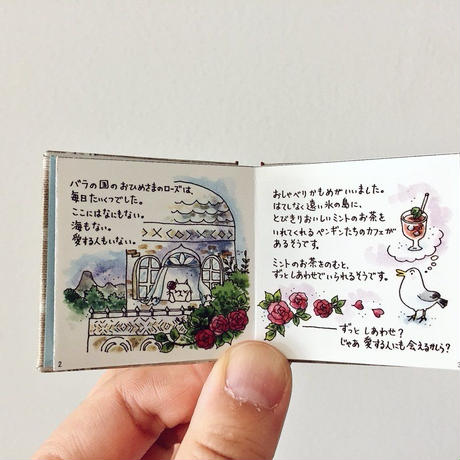 バラの国のおひめさまのローズは、
毎日たいくつでした。
ここにはなにもない。
海もない。
愛する人もいない。
2
おしゃべりかもめがいいました。
はてしなく遠い氷の島に、
とびきりおいしいミントのお茶を
いれてくれるペンギンたちのカフェが
あるそうです。
ミントのお茶をのむと、
ずっとしあわせでいられるそうです。
――― ずっと しあわせ？
じゃあ 愛する人にも 会えるかしら？
3